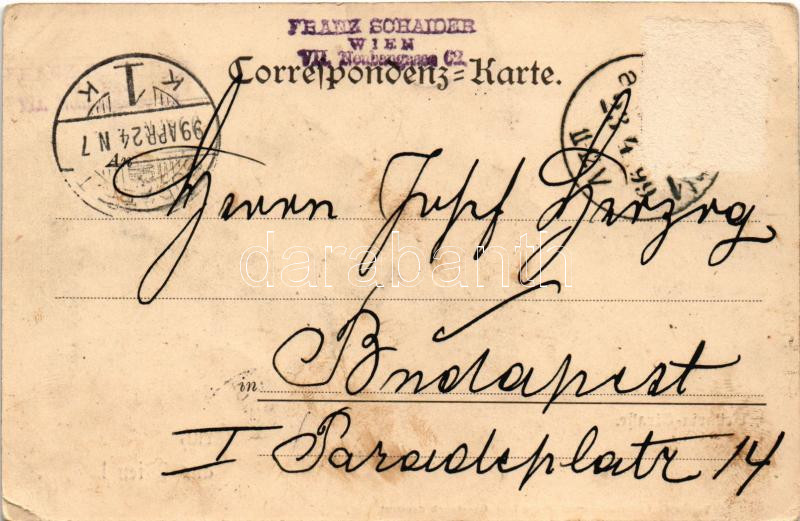 FRANZ SCHAIDER
WIEN
VII. Neubaugasse 62.
Correspondenz-Karte.
1
K K
99 APR 24 N 7
An
Herrn Josef Herzog
darabanth
in Budapest
I Paradeplatz 14